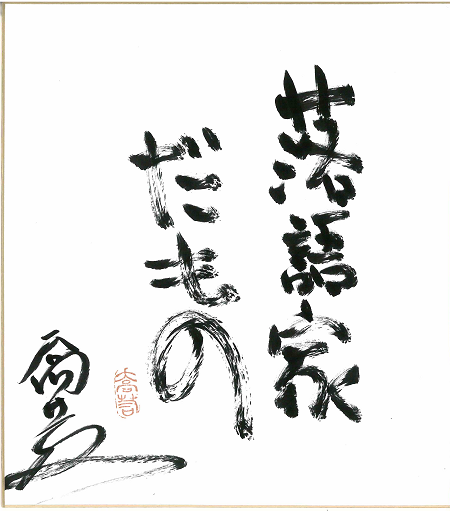 落語家
だもの